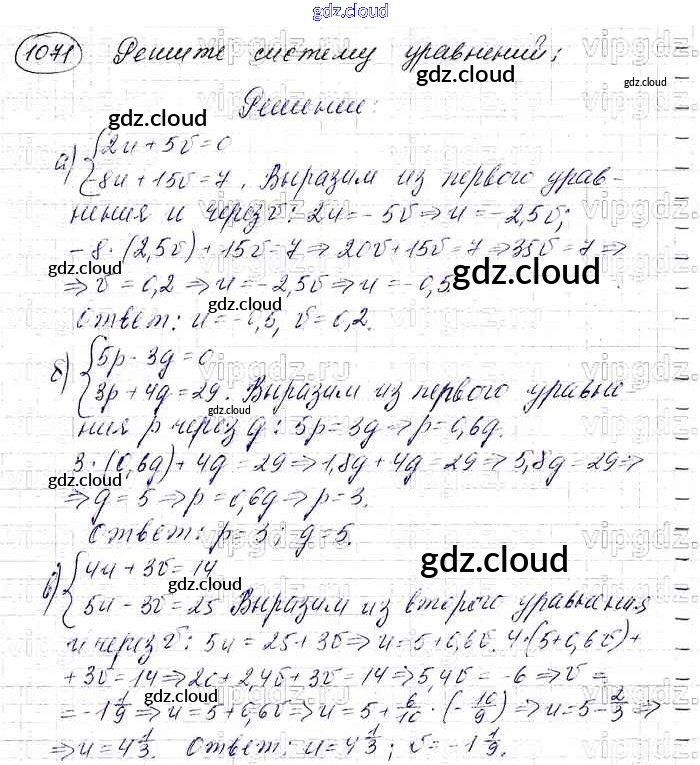 gdz.cloud
1071 Решите систему уравнений;
gdz.cloud
gdz.cloud
Решение:
gdz.cloud
а) {2u + 5v = 0
-8u + 15v = 7. Выразим из первого урав-
нения u через v: 2u = -5v ⇒ u = -2,5v;
-8·(2,5v) + 15v = 7 ⇒ 20v + 15v = 7 ⇒ 35v = 7 ⇒
gdz.cloud
gdz.cloud
⇒ v = 0,2 ⇒ u = -2,5v ⇒ u = -0,5
gdz.cloud
Ответ: u = -0,5, v = 0,2.
б) {5p - 3q = 0
3p + 4q = 29. Выразим из первого уравне-
gdz.cloud
ния p через q: 5p = 3q ⇒ p = 0,6q.
3·(0,6q) + 4q = 29 ⇒ 1,8q + 4q = 29 ⇒ 5,8q = 29 ⇒
⇒ q = 5 ⇒ p = 0,6q ⇒ p = 3.
gdz.cloud
Ответ: p = 3; q = 5.
gdz.cloud
в) {4u + 3v = 14
gdz.cloud
5u - 3v = 25 Выразим из второго уравнения
u через v: 5u = 25 + 3v ⇒ u = 5 + 0,6v. 4·(5 + 0,6v) +
+ 3v = 14 ⇒ 20 + 2,4v + 3v = 14 ⇒ 5,4v = -6 ⇒ v =
gdz.cloud
= -1 1/9 ⇒ u = 5 + 0,6v ⇒ u = 5 + 6/10 · (-10/9) ⇒ u = 5 - 2/3 ⇒
⇒ u = 4 1/3. Ответ: u = 4 1/3; v = -1 1/9.
gdz.cloud